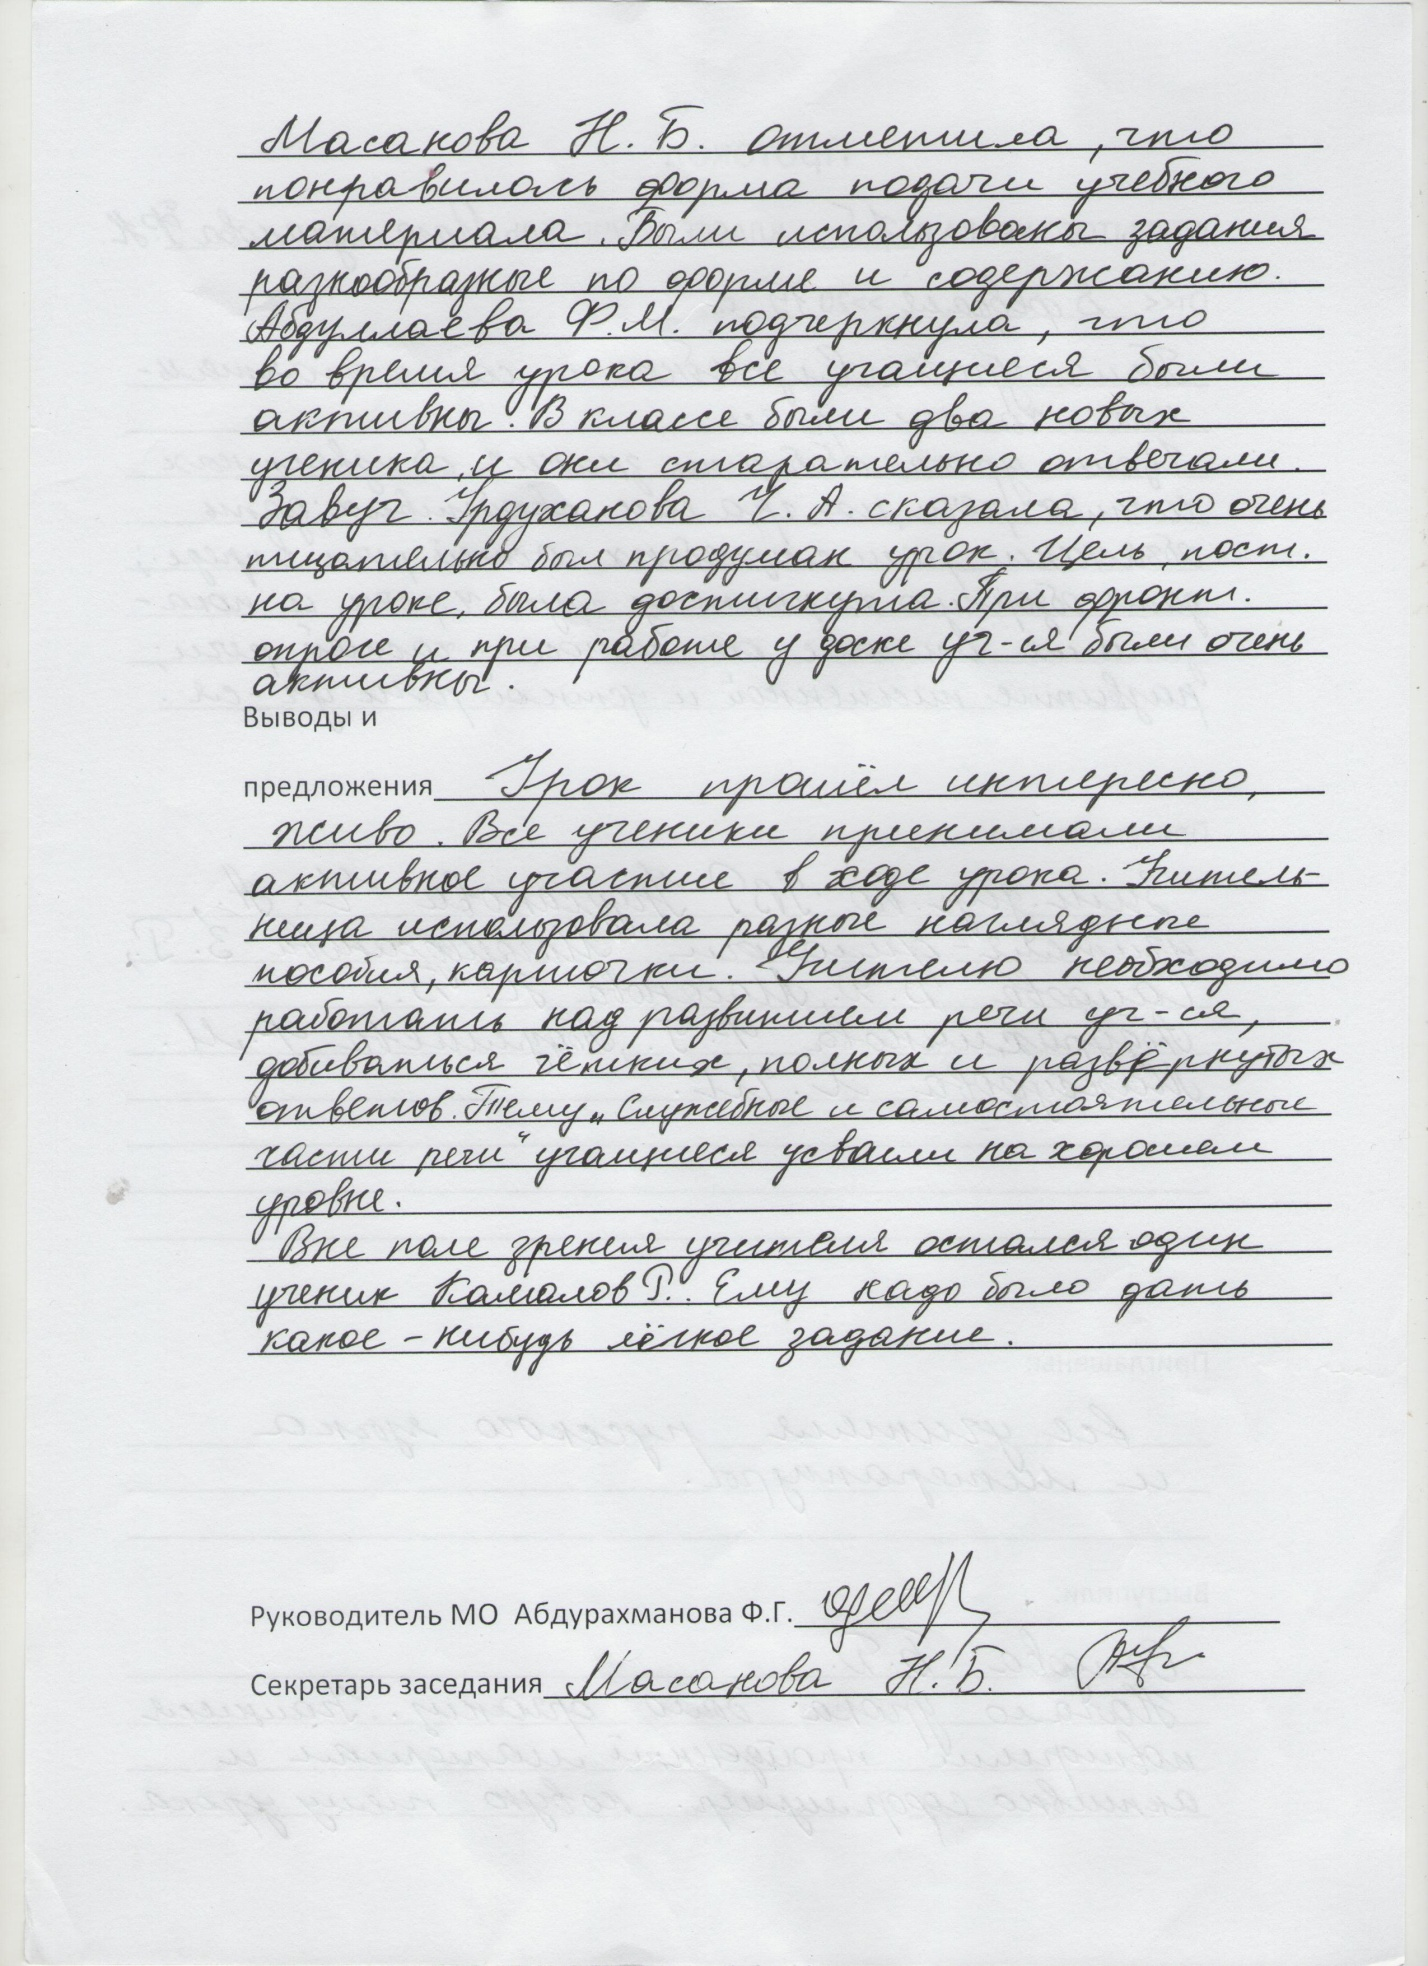 Масакова Н. Б. отметила, что
понравилась форма подачи учебного
материала. Были использованы задания
разнообразные по форме и содержанию.
Абдуллаева Ф. М. подчеркнула, что
во время урока все учащиеся были
активны. В классе были два новых
ученика, и они старательно отвечали.
Завуч Урдуханова Ч. А. сказала, что очень
тщательно был продуман урок. Цель, пост.
на уроке, была достигнута. При фронт.
опросе и при работе у доски уч-ся были очень
активны.
Выводы и
предложения Урок прошёл интересно,
живо. Все ученики принимали
активное участие в ходе урока. Учитель-
ница использовала разные наглядные
пособия, карточки. Учителю необходимо
работать над развитием речи уч-ся,
добиваться чётких, полных и развёрнутых
ответов. Тему „Служебные и самостоятельные
части речи“ учащиеся усвоили на хорошем
уровне.
Вне поле зрения учителя остался один
ученик Камалов Р.. Ему надо было дать
какое-нибудь лёгкое задание.
Руководитель МО Абдурахманова Ф.Г.
Секретарь заседания Масакова Н. Б.